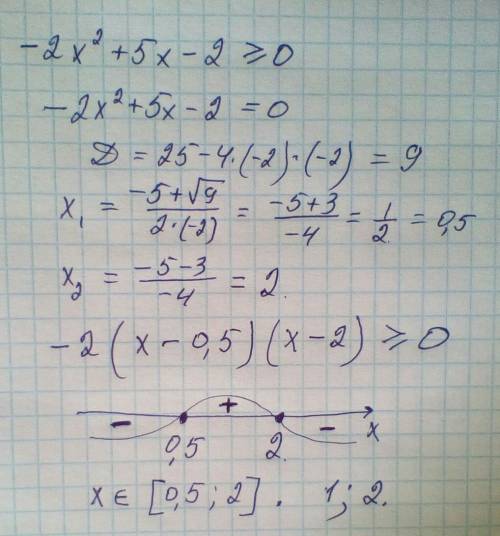 -2x² + 5x - 2 ≥ 0
-2x² + 5x - 2 = 0
D = 25 - 4·(-2)·(-2) = 9
x₁ = (-5+√9)/(2·(-2)) = (-5+3)/(-4) = 1/2 = 0,5
x₂ = (-5-3)/(-4) = 2.
-2(x - 0,5)(x - 2) ≥ 0
- + -
0,5 2. x
x ∈ [0,5; 2]. 1; 2.